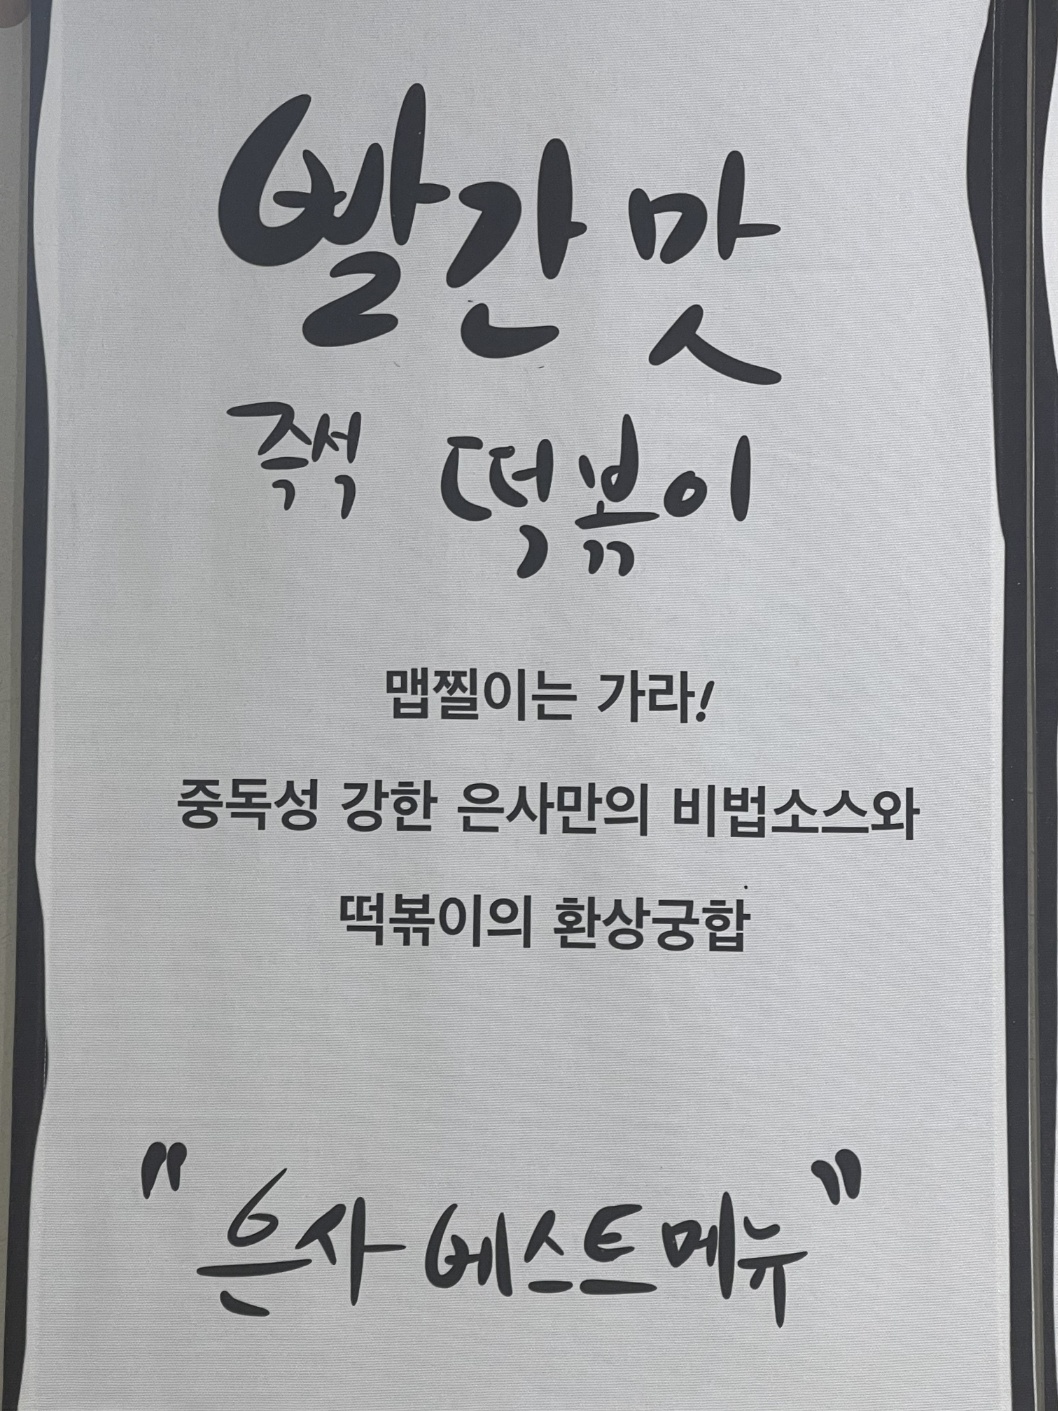 빨간 맛
즉석 떡볶이
맵찔이는 가라!
중독성 강한 은사만의 비법소스와
떡볶이의 환상궁합
"은사 베스트 메뉴"